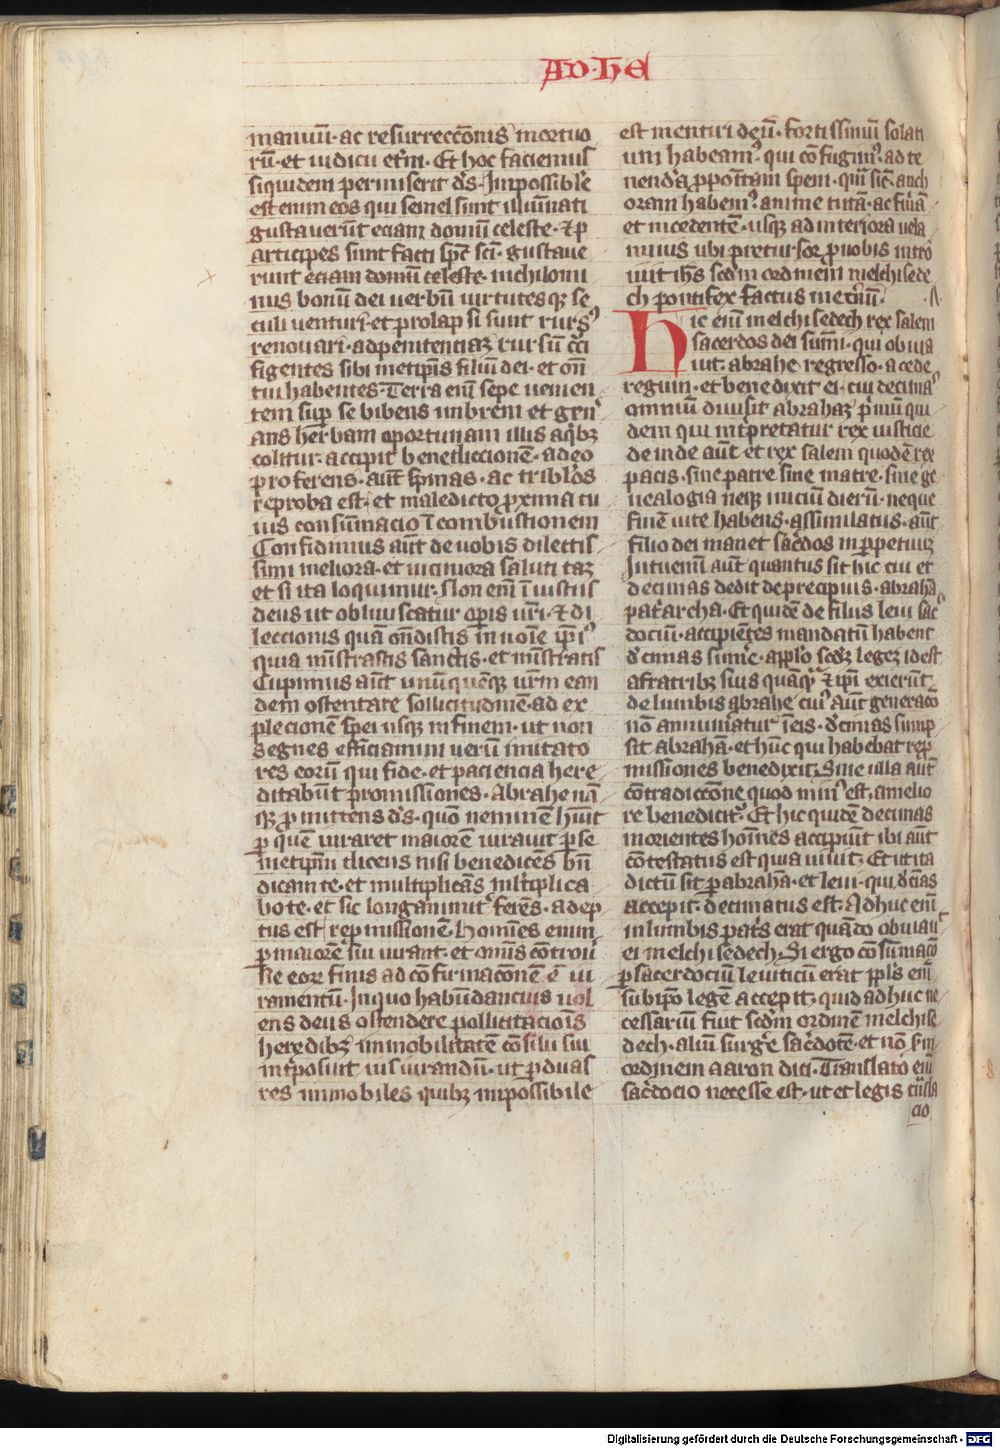 AD · HE
manuū · ac resurreccōnis mortuo
rū · et iudicii et̄ni · Et hoc faciemus
siquidem permiserit ds̄ · Impossibile
est enim eos qui semel sunt illumīati
gustauerūt eciam donum celeste · et p̄
articipes sunt facti spc̄ sci · gustaue
runt eciam domū celeste · nichilomi
nus bonū dei uerbū uirtutesqꝫ se
culi uenturi · et prolapsi sunt rursꝰ
renouari · ad penitenciaꝫ rursū c̄ci
figentes sibi metip̄is filiū dei · et oñ
tui habentes · Terra enī sepe uenien
tem suꝑ se bibens imbrem et gn̄ı
ans herbam oportunam illis a qͥbꝫ
colitur · accipit benediccionem · a deo
proferens · aut̄ spinas · ac tribl̄os
reproba est · et maledicto ꝓxima cu
ius consūmacio ī combustionem
Confidimus aūt de uobis dilectis
simi meliora · et uiciniora saluti taꝫ
et si ita loquimur · Non enī ī iustus
deus ut obliuiscatur oꝑis ur̄i · et di
leccionis quā oñdistis in noīe ip̄iꝰ
quia mīstrastis sanctis · et mīstratis
Cupimus aūt unūquēqꝫ ur̄m ean
dem ostentare sollicitudinē · ad ex
plecionē spei usqꝫ in finem · ut non
segnes efficiamini uerū imitato
res eorū qui fide · et paciencia here
ditabūt promissiones · Abrahe nā
qꝫ ꝓmittens ds̄ · quō neminē huit
ꝑ quē iuraret maiorē iurauit ꝑ se
metip̄m dicens nisi benedicēs bn̄
dicam te · et multiplicās ml̄tiplica
bo te · et sic longanimitͣ ferēs · adep
tus est repmissionē · Homīes enim
ꝑ maiorē sui iurant · et omīs cōtrou̇
sie eorꝝ finis ad cōfirmacōnē ē iu
ramentū · In quo habūdancius uol
ens deus ostendere pollicitacioīs
heredibꝫ immobilitatē cōsilii sui
int̄posuit iusiurandū · ut ꝑ duas
res immobiles quibꝫ impossibile
est mentiri deū · fortissimū solati
um habeamꝰ qui cōfugimꝰ · ad te
nendā ꝓpositam spem · quā sic̄ anch
oram habemꝰ anime tutā · ac firmā
et incedentē · usqꝫ ad interiora uela
minis ubi precursor ꝓ nobis intro
iuit ihs̄ scd̄m ordinem melchisede
ch pontifex factus in et̄nū ·
Hic enī melchisedech rex salem
sacerdos dei sūmi · qui obuia
uit · abrahe regresso · a cede
regum · et benedixit ei · cui decimaˢ
omniū diuisit abrahaꝫ p̄mū qui
dem qui int̄pretatur rex iusticie
deinde aūt et rex salem quod ē rex
pacis · sine patre sine matre · sine ge
nealogia neqꝫ iniciū dierū · neque
finē uite habens · assimilatus · aūt
filio dei manet sac̄dos in ꝑpetuuꝫ
Intuemī aūt quantus sit hic cui et
decimas dedit de precipuis · abrahā
pat̄archa · Et quidē de filiis leui sac̄
dociū · accipiētes mandatū habent
dēcimas sum̄e · a pplo scd̄ꝫ legeꝫ id est
a fratribꝫ suis quāqͣ et ip̄i exierūt
de lumbis abrahe cuiꝰ aūt generacō
nō annum̄atur ī eis · decimas sump
sit abrahā · et hūc qui habebat rep̄
missiones benedixit · Sine ulla aūt
cōtradiccōne quod minꝰ est · a melio
re benedicitᷣ · Et hic quidē decimas
morientes hoīnes accipiūt ibi aūt
cōtestatus est quia uiuit · Et ut ita
dictū sit ꝑ abrahā · et leui · qui dēcīas
accepit · decimatus est · Adhuc enī
in lumbis pat̄s erat quādo obuiauit
ei melchisedech · Si ergo cōsūmacō
ꝑ sacerdociū leuiticū erat ppl̄s enī
sub ip̄o legē accepit · quid adhuc ne
cessariū fuit scd̄m ordinē melchise
dech · aliū surgē sac̄dotē · et nō scd̄m
ordinem aaron dici · Translato enī
sac̄docio necesse est · ut et legis trāsla
cio